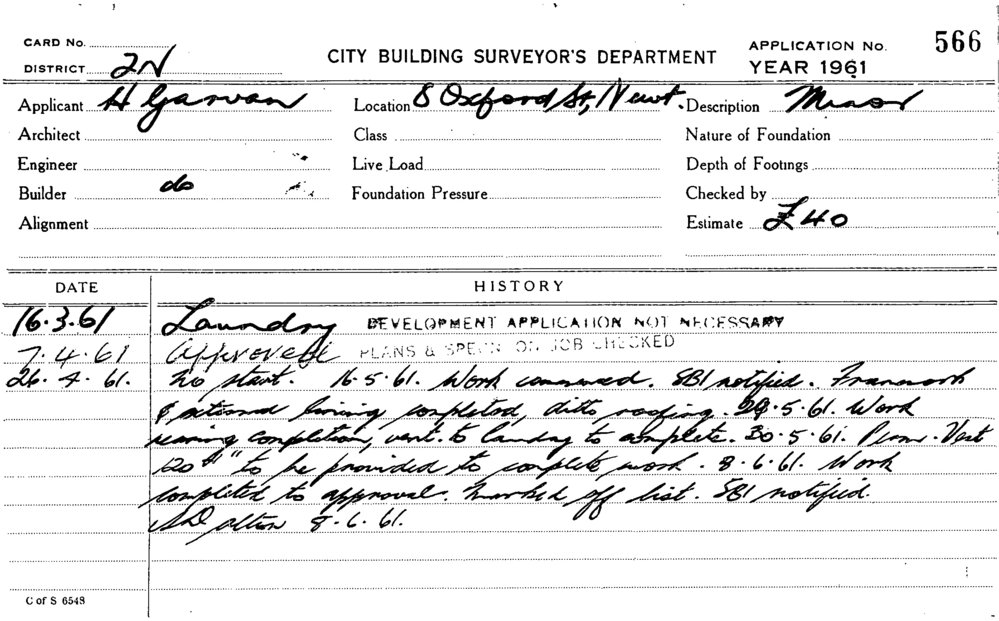 CARD No.
DISTRICT 2N
CITY BUILDING SURVEYOR'S DEPARTMENT
APPLICATION No. 566
YEAR 1961
Applicant H Garvan Location 8 Oxford St, Newt. Description Minor
Architect Class Nature of Foundation
Engineer Live Load Depth of Footings
Builder do Foundation Pressure Checked by
Alignment Estimate £40
DATE HISTORY
16.3.61 Laundry DEVELOPMENT APPLICATION NOT NECESSARY
7.4.61 Approved PLANS & SPECN ON JOB CHECKED
26.4.61. No start. 16.5.61. Work commenced. SBI notified. Framework
& external lining completed, ditto roofing. 29.5.61. Work
nearing completion, vent. to laundry to complete. 30.5.61. Perm. Vent
120 to be provided to complete work. 8.6.61. Work
completed to approval. Marked off list. SBI notified.
8.6.61.
C of S 6548